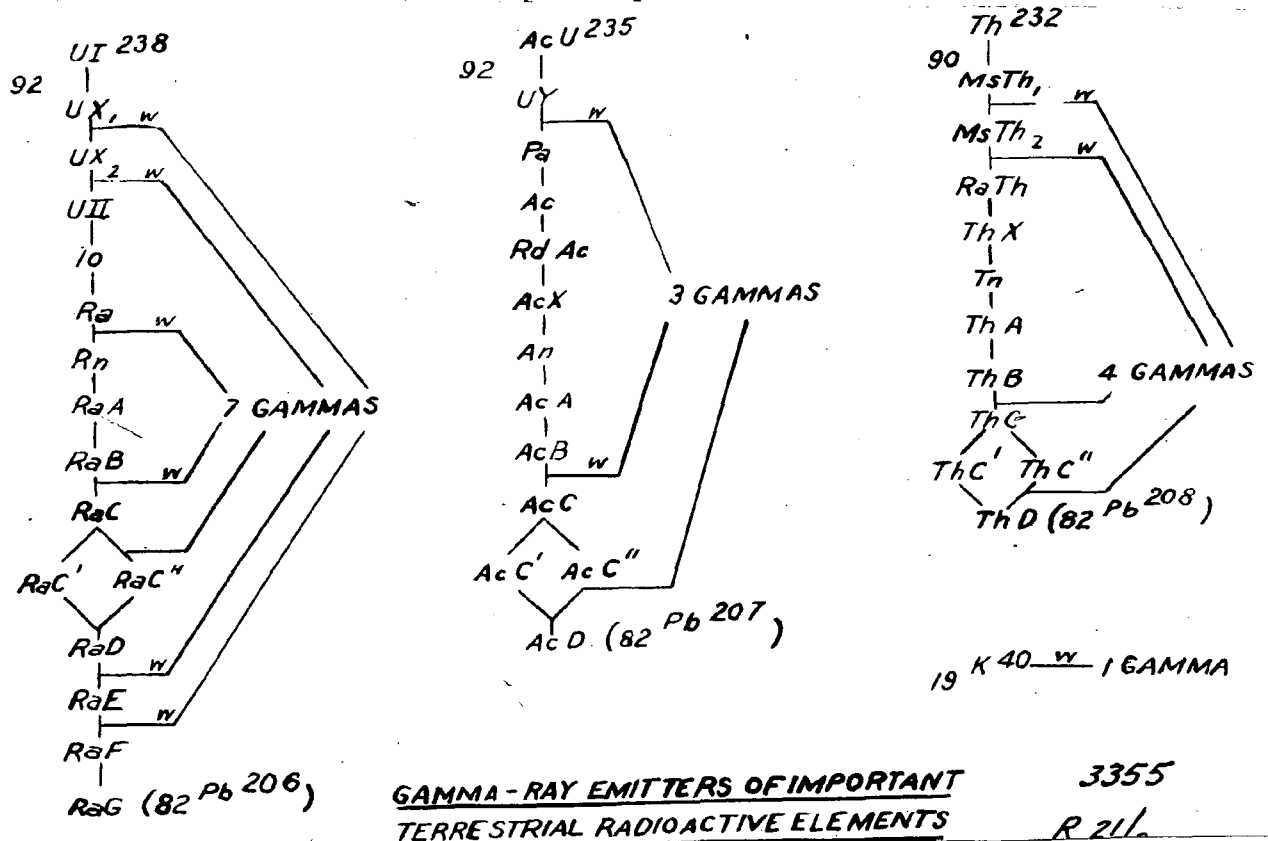 UI 238
92
UX1 w
UX2 w
UII
Io
Ra w
Rn
RaA
RaB w
RaC
RaC' RaC"
RaD w
RaE w
RaF
RaG (82 Pb 206)
7 GAMMAS
AcU 235
92
UY w
Pa
Ac
Rd Ac
AcX
An
AcA
AcB w
AcC
AcC' AcC"
AcD. (82 Pb 207)
3 GAMMAS
Th 232
90
MsTh1 w
MsTh2 w
RaTh
ThX
Tn
ThA
ThB
ThC
ThC' ThC"
ThD (82 Pb 208)
4 GAMMAS
19 K 40 w 1 GAMMA
GAMMA-RAY EMITTERS OF IMPORTANT
TERRESTRIAL RADIOACTIVE ELEMENTS
3355